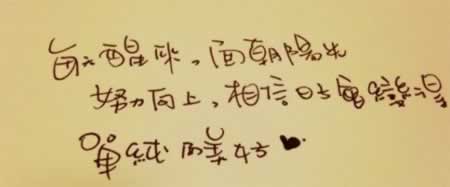 每天醒來，面朝陽光
努力向上，相信日子會變得
單純而美好